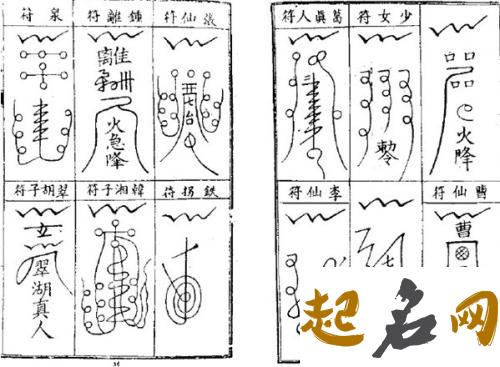 火降
少女符
勅
葛眞人符
曹仙符
曹
李仙符
張仙符
鍾離符
離
火急降
泉符
鉄拐符
韓湘子符
翠胡子符
翠湖真人
36
起名网